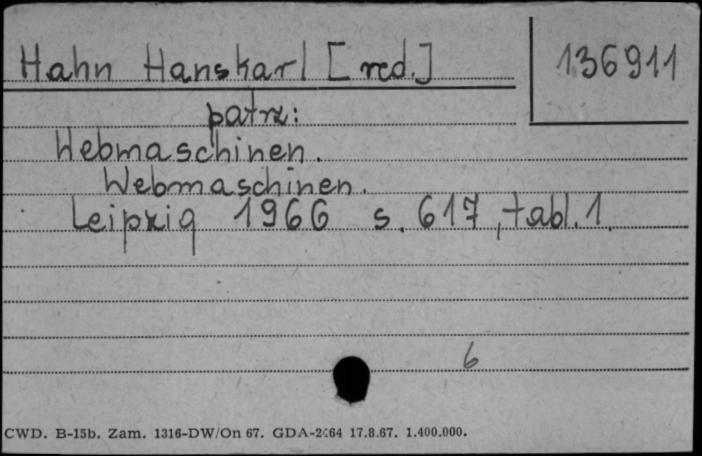 Hahn Hanskarl [red.] 136911
patrz:
Webmaschinen.
Webmaschinen.
Leipzig 1966 s. 617, tabl. 1.
6
CWD. B-15b. Zam. 1316-DW/On 67. GDA-2464 17.8.67. 1.400.000.